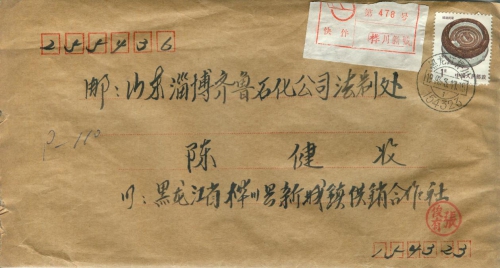 255436
第 478 号
桦川新城
邮：山东淄博齐鲁石化公司法制处
陈 健 收
川：黑龙江省桦川县新城镇供销合作社
154323